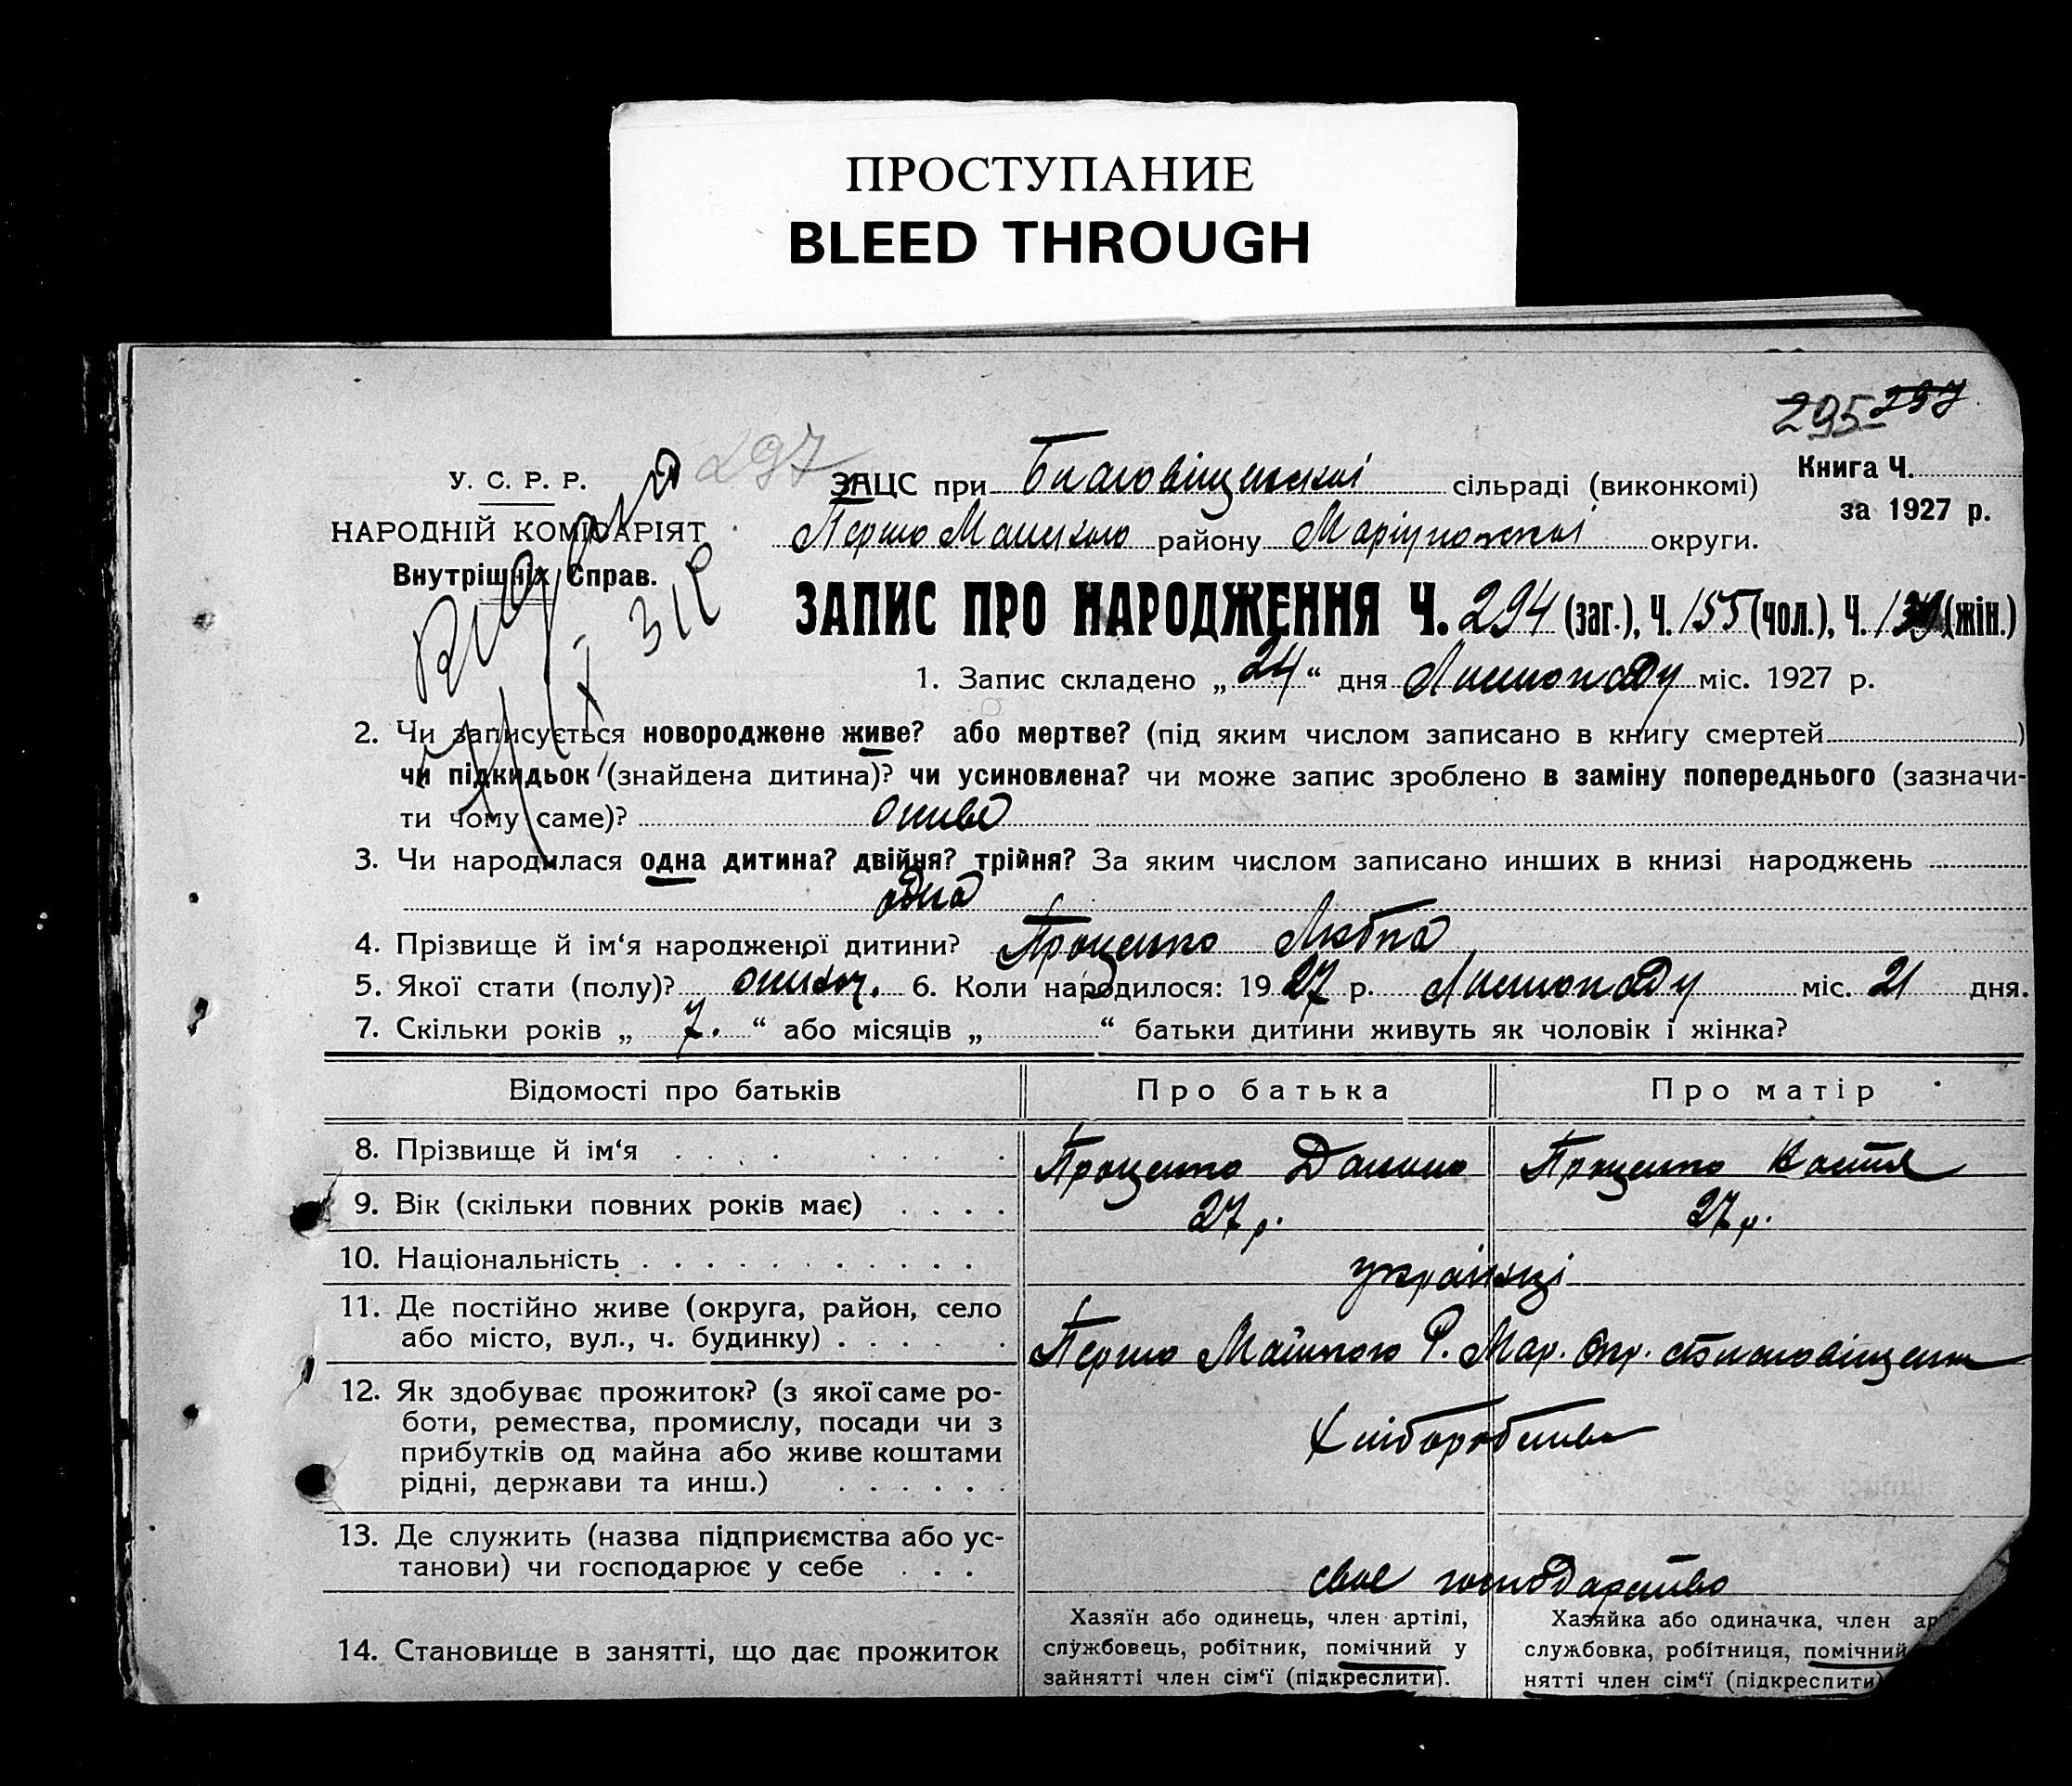 ПРОСТУПАНИЕ
BLEED THROUGH
295 297
297
У. С. Р. Р.
НАРОДНІЙ КОМІСАРІЯТ
Внутрішніх Справ.
ЗАЦС при Благовіщенській сільраді (виконкомі)
Книга Ч.
за 1927 р.
Першо Майського району Маріупольської округи.
ЗАПИС ПРО НАРОДЖЕННЯ Ч. 294 (заг.), Ч. 155 (чол.), Ч. (жін.)
1. Запис складено „ 24 “ дня Листопаду міс. 1927 р.
2. Чи записується новороджене живе? або мертве? (під яким числом записано в книгу смертей )
чи підкидьок (знайдена дитина)? чи усиновлена? чи може запис зроблено в заміну попереднього (зазначи-
ти чому саме)? живе
3. Чи народилася одна дитина? двійня? трійня? За яким числом записано инших в книзі народжень
одна
4. Прізвище й ім‘я народженої дитини? Проценко Любка
5. Якої стати (полу)? жіноч. 6. Коли народилося: 19 27 р. Листопаду міс. 21 дня.
7. Скільки років „ 7. “ або місяців „ “ батьки дитини живуть як чоловік і жінка?
Відомості про батьків Про батька Про матір
8. Прізвище й ім‘я Проценко Данило Проценко Кастя
9. Вік (скільки повних років має) 27 р. 27 р.
10. Національність українці
11. Де постійно живе (округа, район, село
або місто, вул., ч. будинку) Першо Майського Р. Мар. Окр.
12. Як здобуває прожиток? (з якої саме ро-
боти, ремества, промислу, посади чи з
прибутків од майна або живе коштами
рідні, держави та инш.)
Хліборобство
13. Де служить (назва підприємства або ус-
танови) чи господарює у себе
своє господарство
14. Становище в занятті, що дає прожиток
Хазяїн або одинець, член артілі,
службовець, робітник, помічний у
зайнятті член сім‘ї (підкреслити).
Хазяйка або одиначка, член ар
службовка, робітниця, помічний
нятті член сім‘ї (підкреслити)